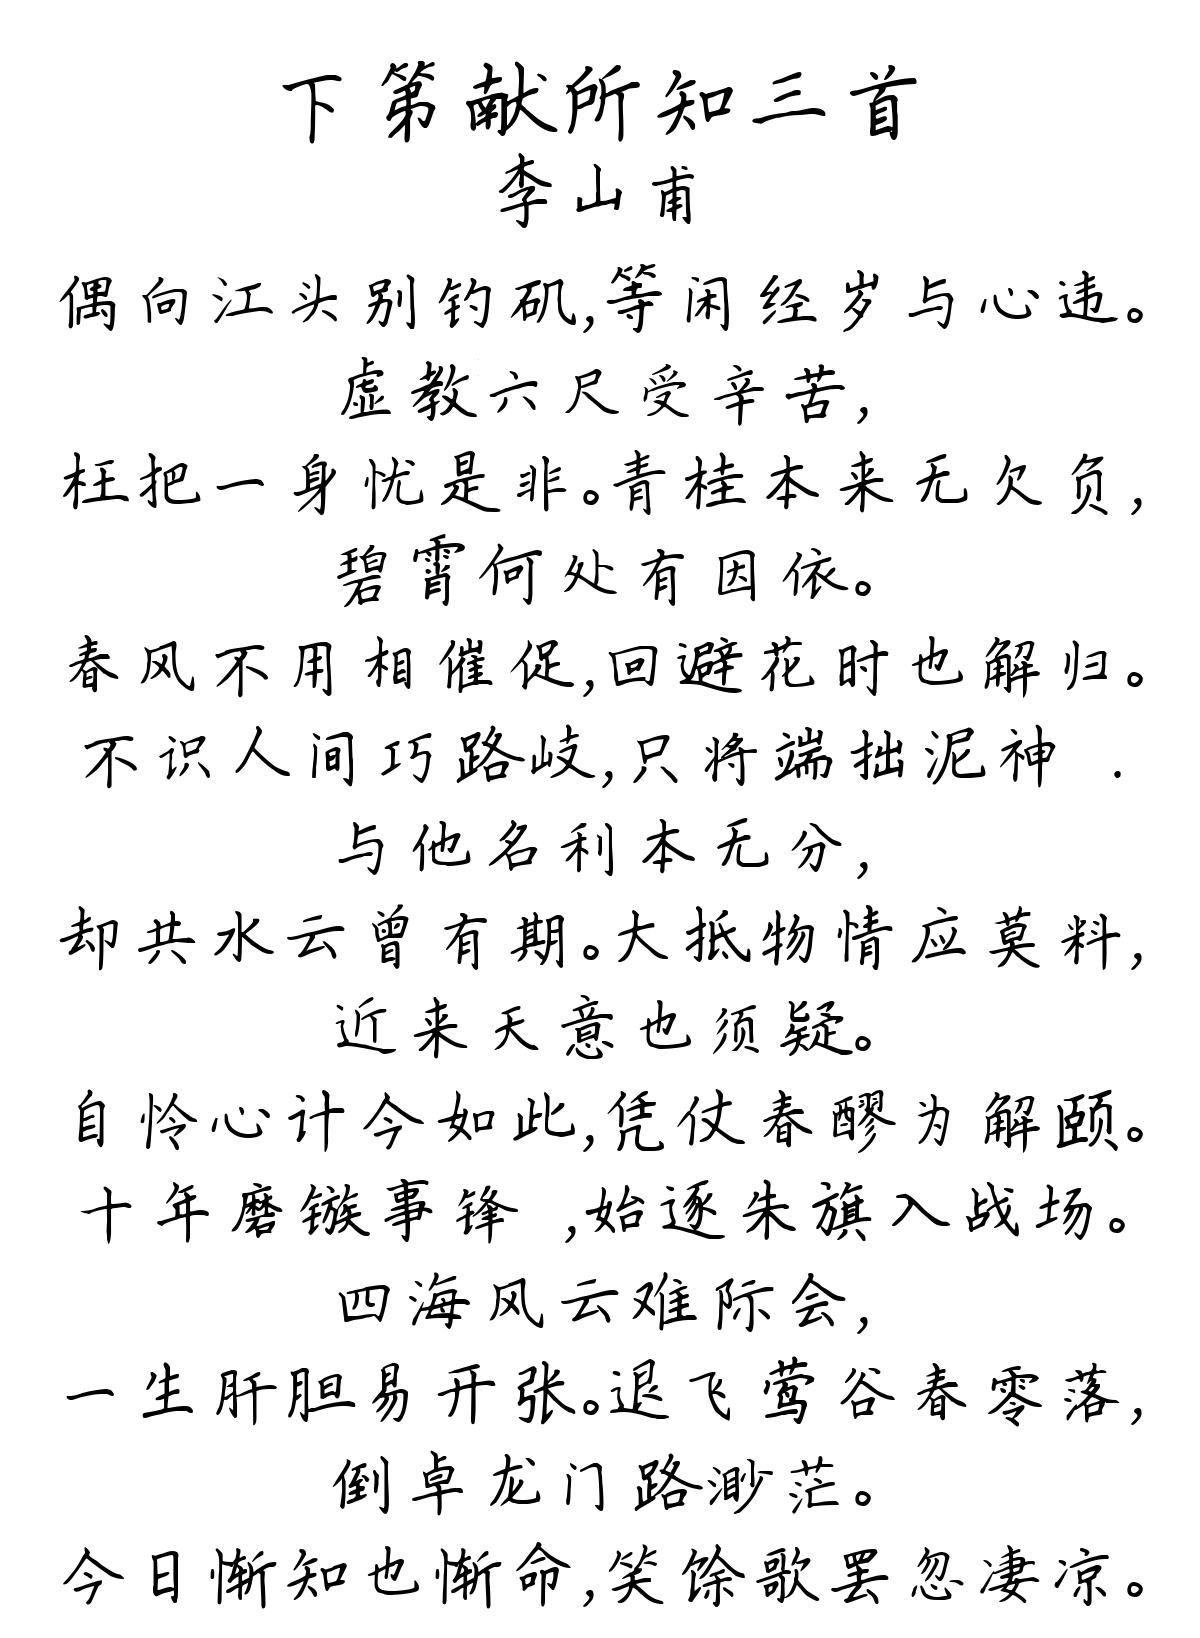 下第献所知三首
李山甫
偶向江头别钓矶,等闲经岁与心违。
虚教六尺受辛苦,
枉把一身忧是非。青桂本来无欠负,
碧霄何处有因依。
春风不用相催促,回避花时也解归。
不识人间巧路岐,只将端拙泥神 .
与他名利本无分,
却共水云曾有期。大抵物情应莫料,
近来天意也须疑。
自怜心计今如此,凭仗春醪为解颐。
十年磨镞事锋 ,始逐朱旗入战场。
四海风云难际会,
一生肝胆易开张。退飞莺谷春零落,
倒卓龙门路渺茫。
今日惭知也惭命,笑馀歌罢忽凄凉。